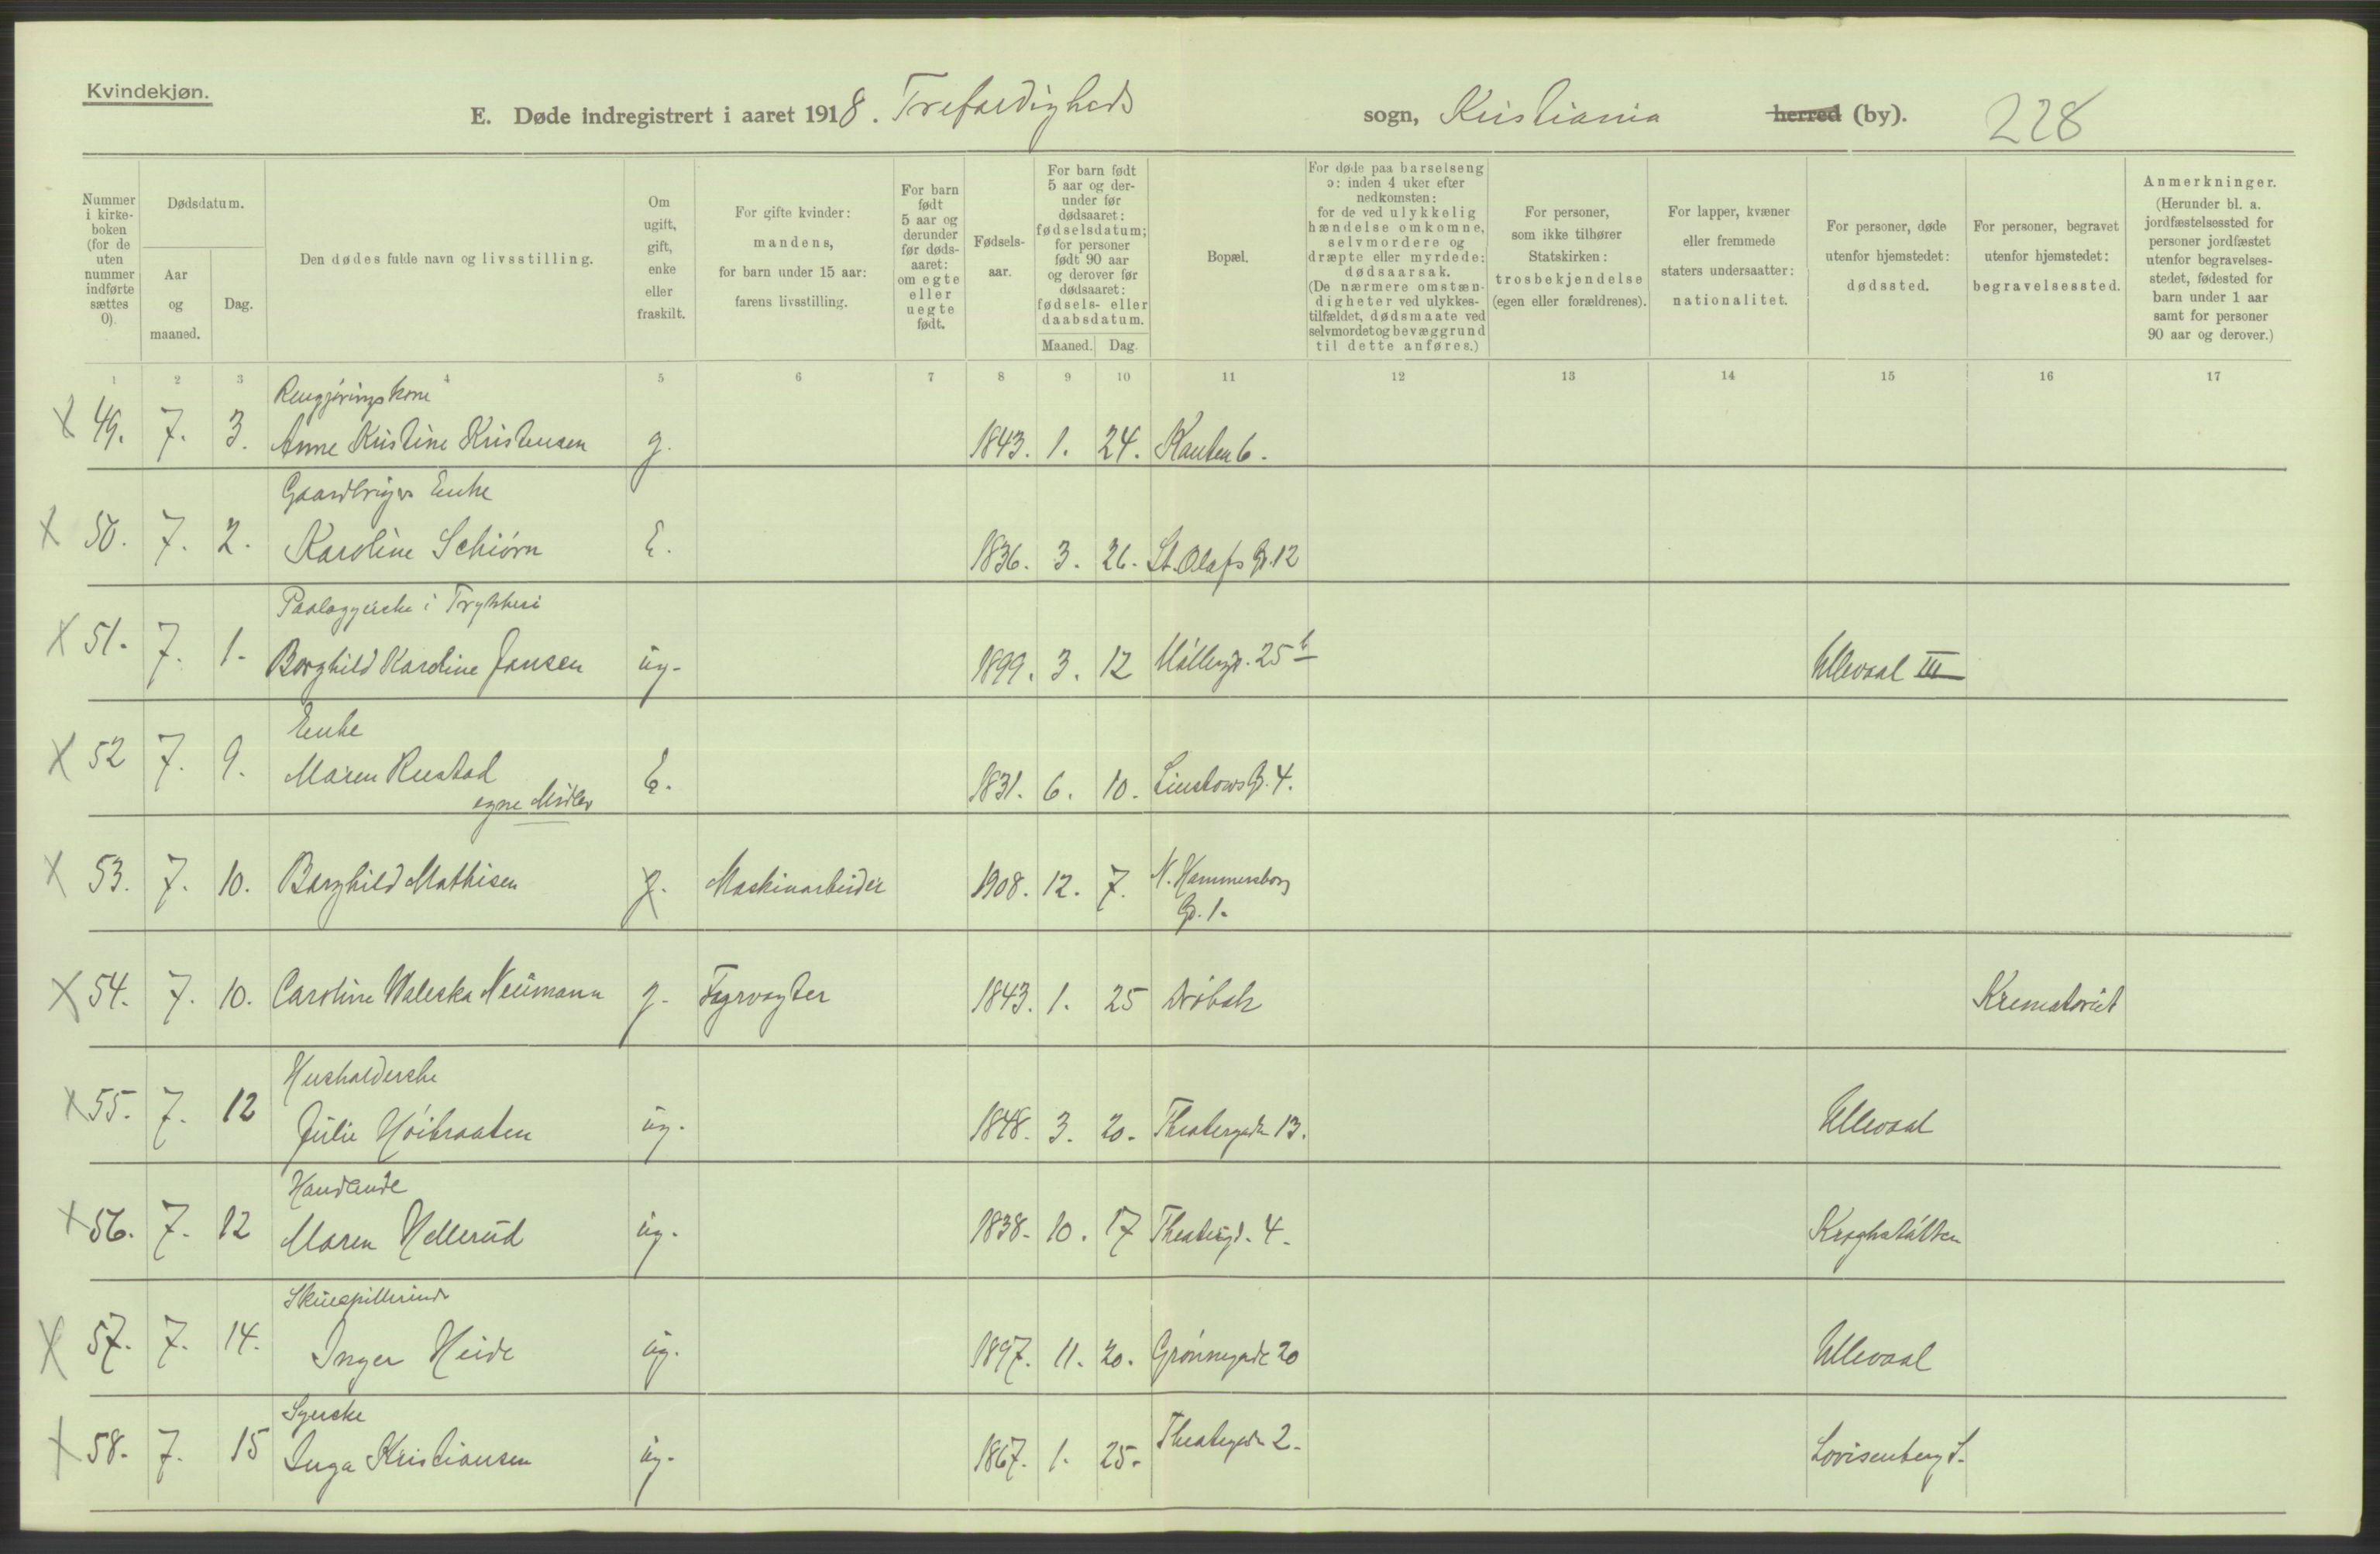 Kvindekjøn.
E. Døde indregistrert i aaret 1918. Trefoldigheds sogn, Kristiania herred (by). 228
Nummer i kirke-boken (for de uten nummer indførte sættes 0).
Dødsdatum.
Aar og maaned.
Dag.
Den dødes fulde navn og livsstilling.
Om ugift, gift, enke eller fraskilt.
For gifte kvinder: mandens, for barn under 15 aar: farens livsstilling.
For barn født 5 aar og derunder før døds-aaret: om egte eller uegte født.
Fødsels-aar.
For barn født 5 aar og der-under før dødsaaret: fødselsdatum; for personer født 90 aar og derover før dødsaaret: fødsels- eller daabsdatum.
Maaned. Dag.
Bopæl.
For døde paa barselseng ɔ: inden 4 uker efter nedkomsten: for de ved ulykkelig hændelse omkomne, selvmordere og dræpte eller myrdede: dødsaarsak. (De nærmere omstæn-digheter ved ulykkes-tilfældet, dødsmaate ved selvmordet og bevæggrund til dette anføres.)
For personer, som ikke tilhører Statskirken: trosbekjendelse (egen eller forældrenes).
For lapper, kvæner eller fremmede staters undersaatter: nationalitet.
For personer, døde utenfor hjemstedet: dødssted.
For personer, begravet utenfor hjemstedet: begravelsessted.
Anmerkninger. (Herunder bl. a. jordfæstelsessted for personer jordfæstet utenfor begravelses-stedet, fødested for barn under 1 aar samt for personer 90 aar og derover.)
1 2 3 4 5 6 7 8 9 10 11 12 13 14 15 16 17
Rengjøringskone
x 49. 7. 3. Anne Kristine Kristensen g. 1843. 1. 24. Kanten 6.
Gaardbrugers Enke
x 50. 7. 2. Karoline Schiørn E. 1836. 3. 26. St. Olafs G. 12
Paalæggerske i Trykkeri
x 51. 7. 1. Borghild Karoline Jansen ug. 1899. 3. 12 Møllergt. 25 b Ullevaal III
Enke
x 52 7. 9. Maren Rustad E. 1831. 6. 10. Linstows G. 4.
egne Midler
x 53. 7. 10. Borghild Mathisen g. Maskinarbeider 1908. 12. 7. N. Hammersborg
G. 1.
x 54. 7. 10. Caroline Waleska Neumann g. Fyrvogter 1843. 1. 25 Drøbak Krematoriet
Husholderske
x 55. 7. 12 Julie Høibraaten ug. 1848. 3. 20. Theatergaden 13. Ullevaal
x 56. 7. 12 Maren Hellerud ug. 1838. 10. 17 Theatergd. 4. Kroghstøtten
Skuespillerinde
x 57. 7. 14. Inger Heide ug. 1897. 11. 20. Grønnegade 20 Ullevaal
Syerske
x 58. 7. 15 Inga Kristiansen ug. 1867. 1. 25. Theatergaden 2. Lovisenberg S.